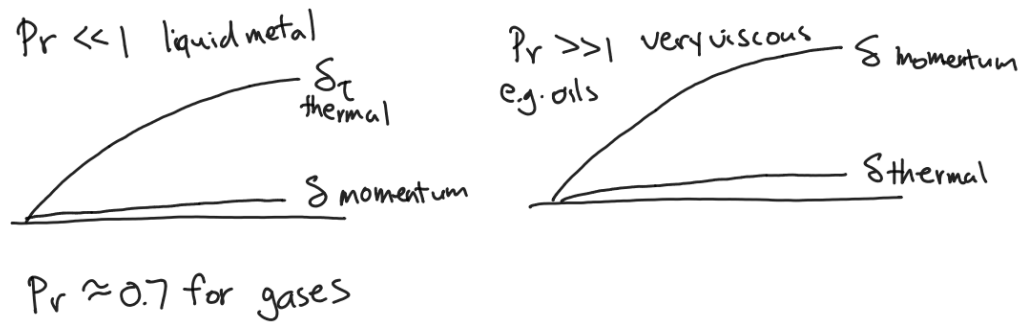 Pr << 1 liquid metal
δτ
thermal
δ momentum
Pr >>1 very viscous
e.g. oils
δ momentum
δ thermal
Pr ≈ 0.7 for gases